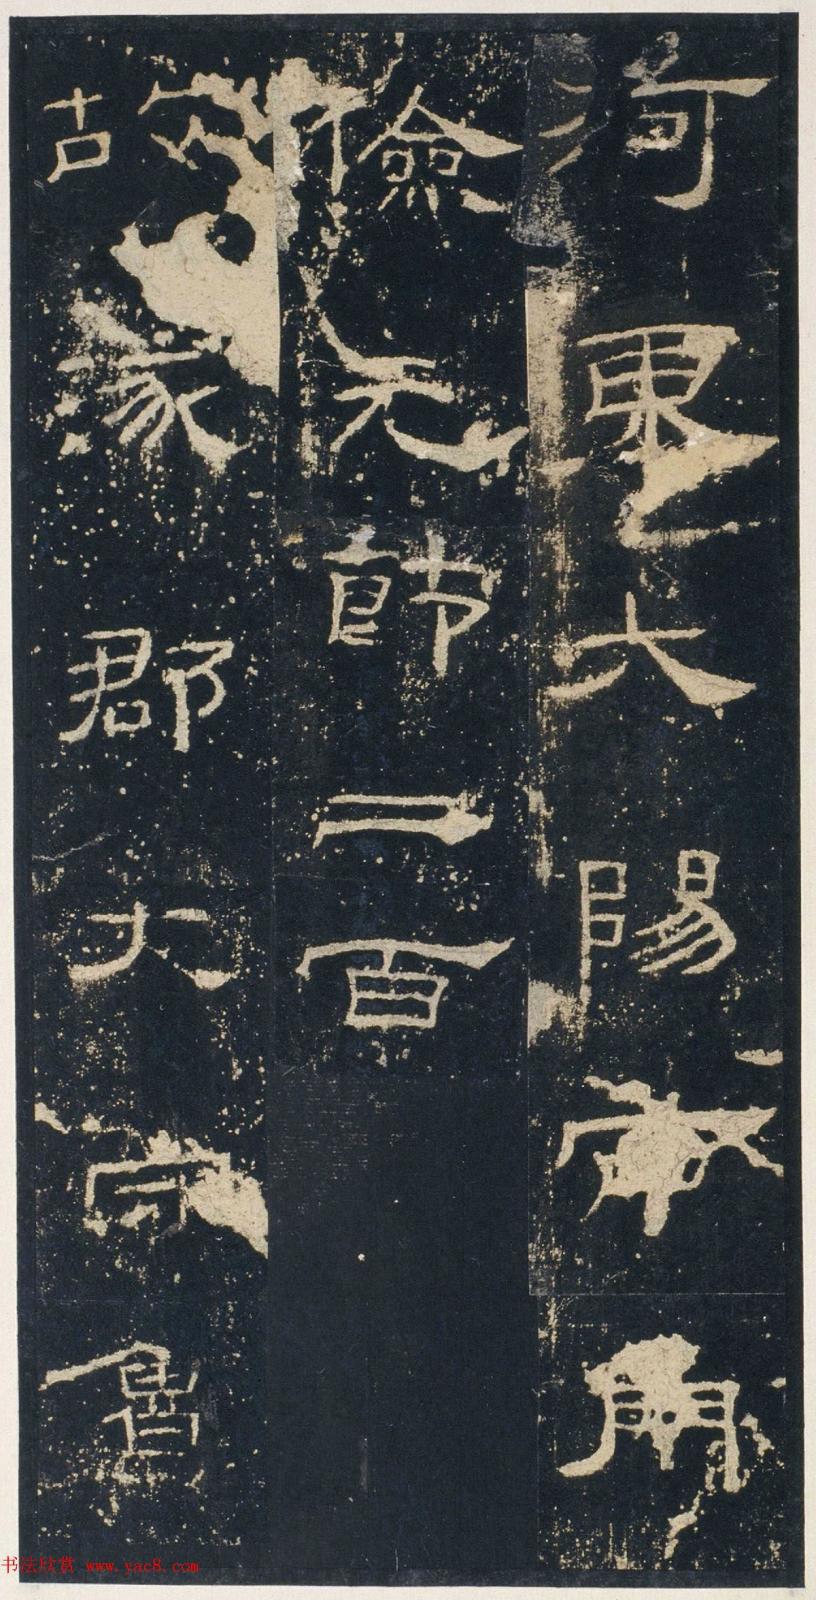 河東大陽西門
儉元節二百
故涿郡大守魯
书法欣赏 www.yac8.com